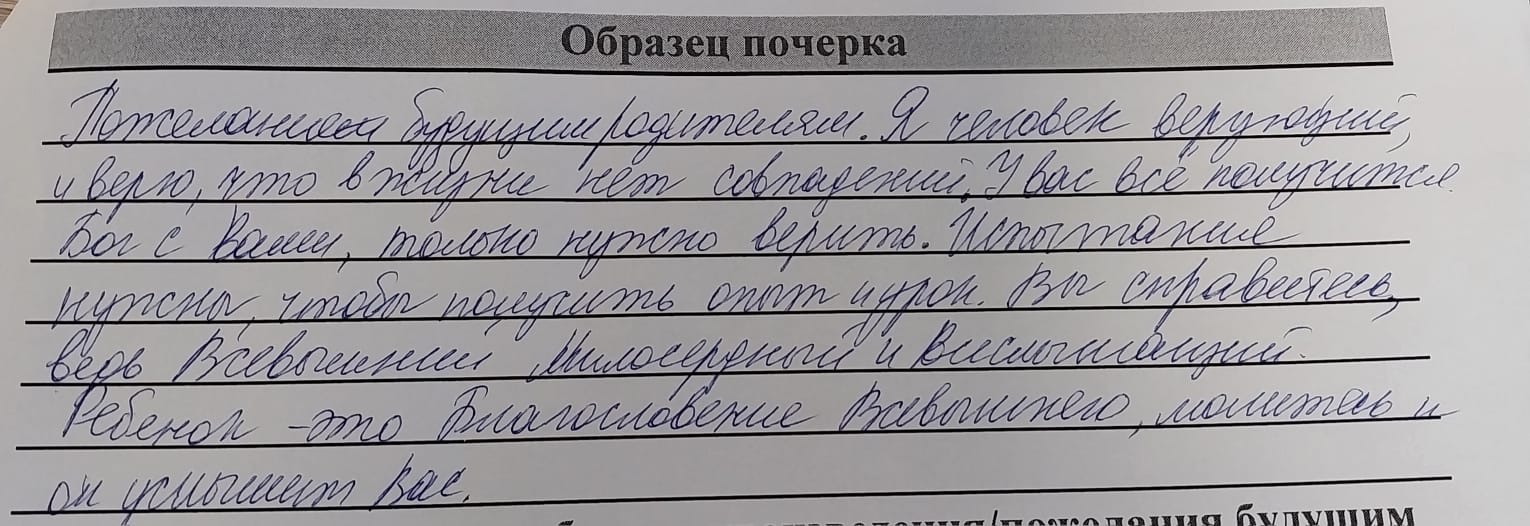 Образец почерка
Пожелания будущим родителям. Я человек верующий,
и верю, что в жизни нет совпадений. У вас всё получится.
Бог с Вами, только нужно верить. Испытание
нужны, чтобы получить опыт и урок. Вы справитесь,
ведь Всевышний Милосердный и Вислышащий.
Ребенок - это Благословение Всевышнего, молитесь и
он услышит Вас.
/пожелания будущим